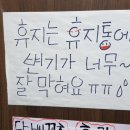 휴지는 휴지통에
변기가 너무~
잘 막혀요 ㅠㅠ